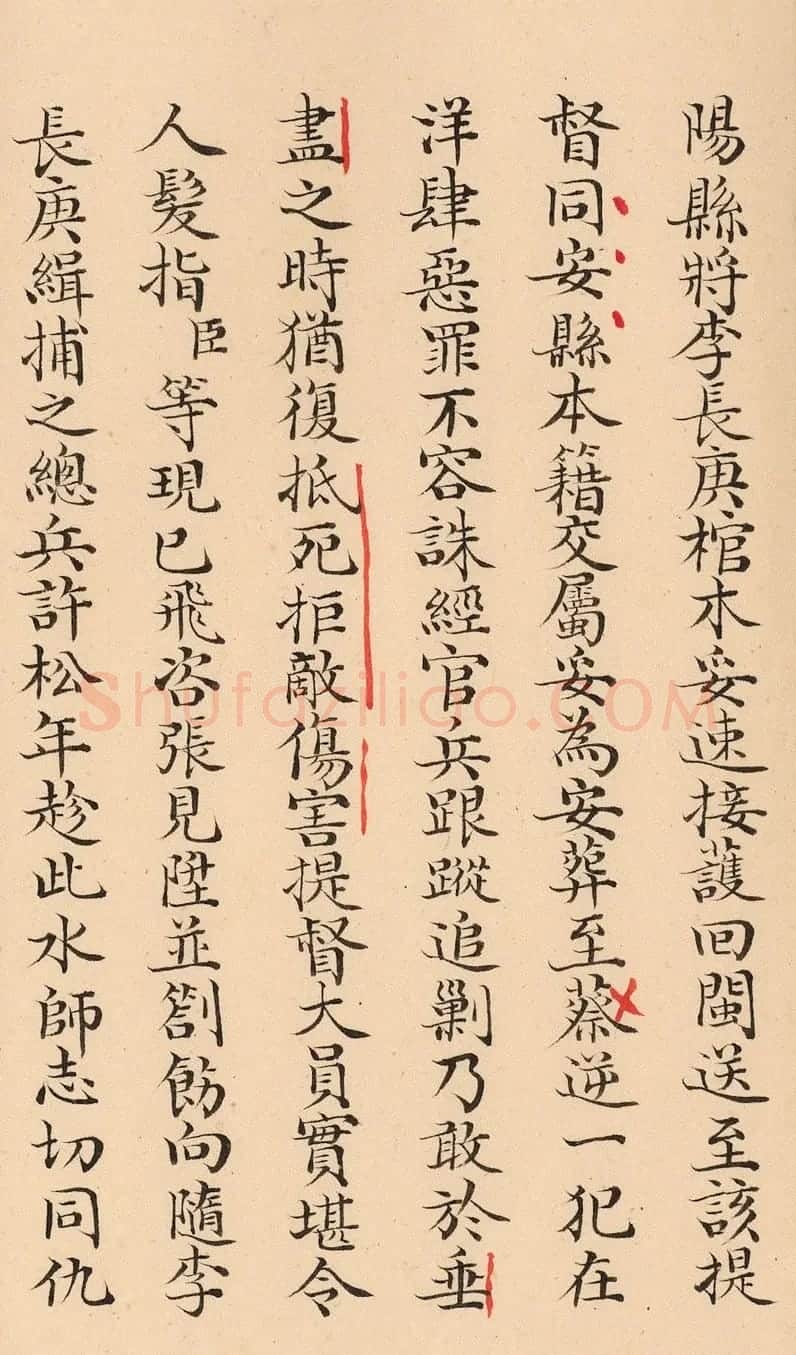 陽縣將李長庚棺木妥速接護回閩送至該提
督同安縣本籍交屬妥為安葬至蔡逆一犯在
洋肆惡罪不容誅經官兵跟蹤追剿乃敢於垂
盡之時猶復抵死拒敵傷害提督大員實堪令
人髮指臣等現已飛咨張見陞並劄飭向隨李
長庚緝捕之總兵許松年趁此水師志切同仇
Shufaziliao.COM